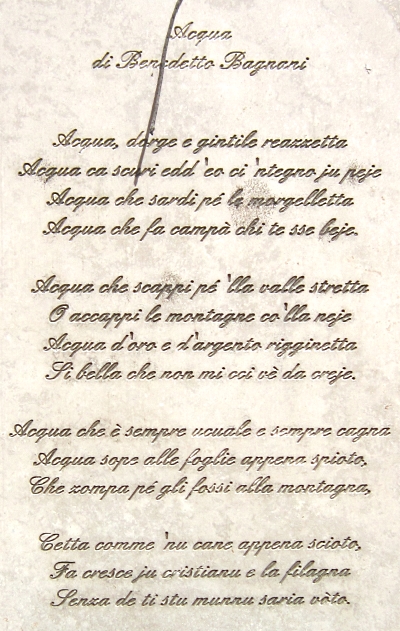 Acqua
di Benedetto Bagnani
Acqua, dorge e gintile reazzetta
Acqua ca scuri edd 'eo ci 'ntegno ju peje
Acqua che sardi pé le morgelletta
Acqua che fa campà chi te sse beje.
Acqua che scappi pé 'lla valle stretta
O accappi le montagne co'lla neje
Acqua d'oro e d'argento rigginetta
Si bella che non mi cci vè da creje.
Acqua che è sempre ucuale e sempre cagna
Acqua sope alle foglie appena spioto,
Che zompa pé gli fossi alla montagna,
Cetta comme 'nu cane appena scioto,
Fa cresce ju cristianu e la filagna
Senza de ti stu munnu saria vòto.